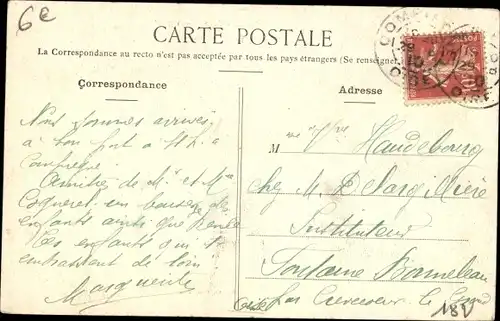 6€
CARTE POSTALE
La Correspondance au recto n'est pas acceptée par tous les pays étrangers (Se renseigner
Correspondance
Adresse
Nous sommes arrivés
à bon port à
Amitiés de Mr et Me
Coqueret un baiser des
enfants ainsi que
Tes enfants qui t'
embrassent de loin
Marguerite
M me Vve Haudebourg
chez M. Delargillière
Instituteur
Fontaine Bonneleau
par Crèvecoeur le Grand
Oise
18V